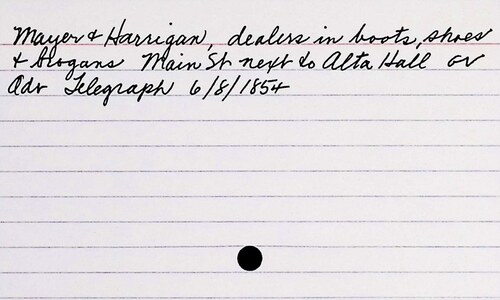 Mayer & Harrigan, dealers in boots, shoes
& brogans Main St next to Alta Hall GV
Adv Telegraph 6/8/1854